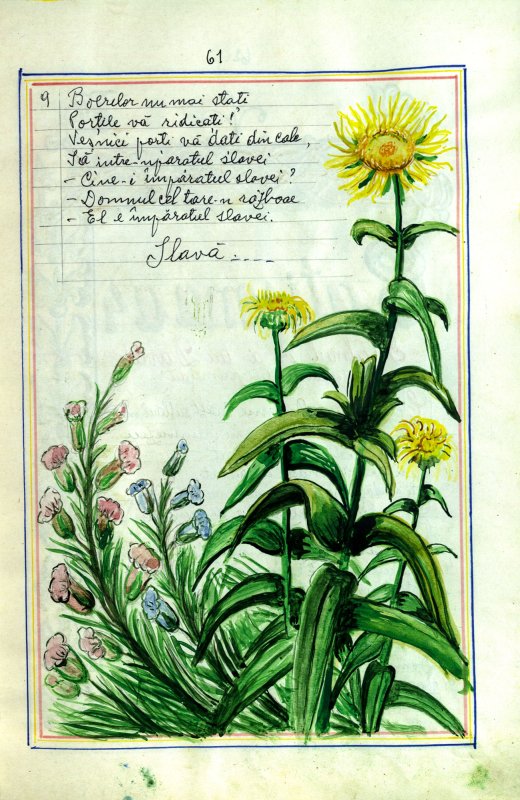 61
9 Boerilor nu mai stati
Porțile vă ridicati!
Veșnici porti vă dati din cale,
Să intre-npăratul slavei
- Cine-i împăratul slavei?
- Domnul cel tare-n războae
- El e împăratul slavei.
Slavă....